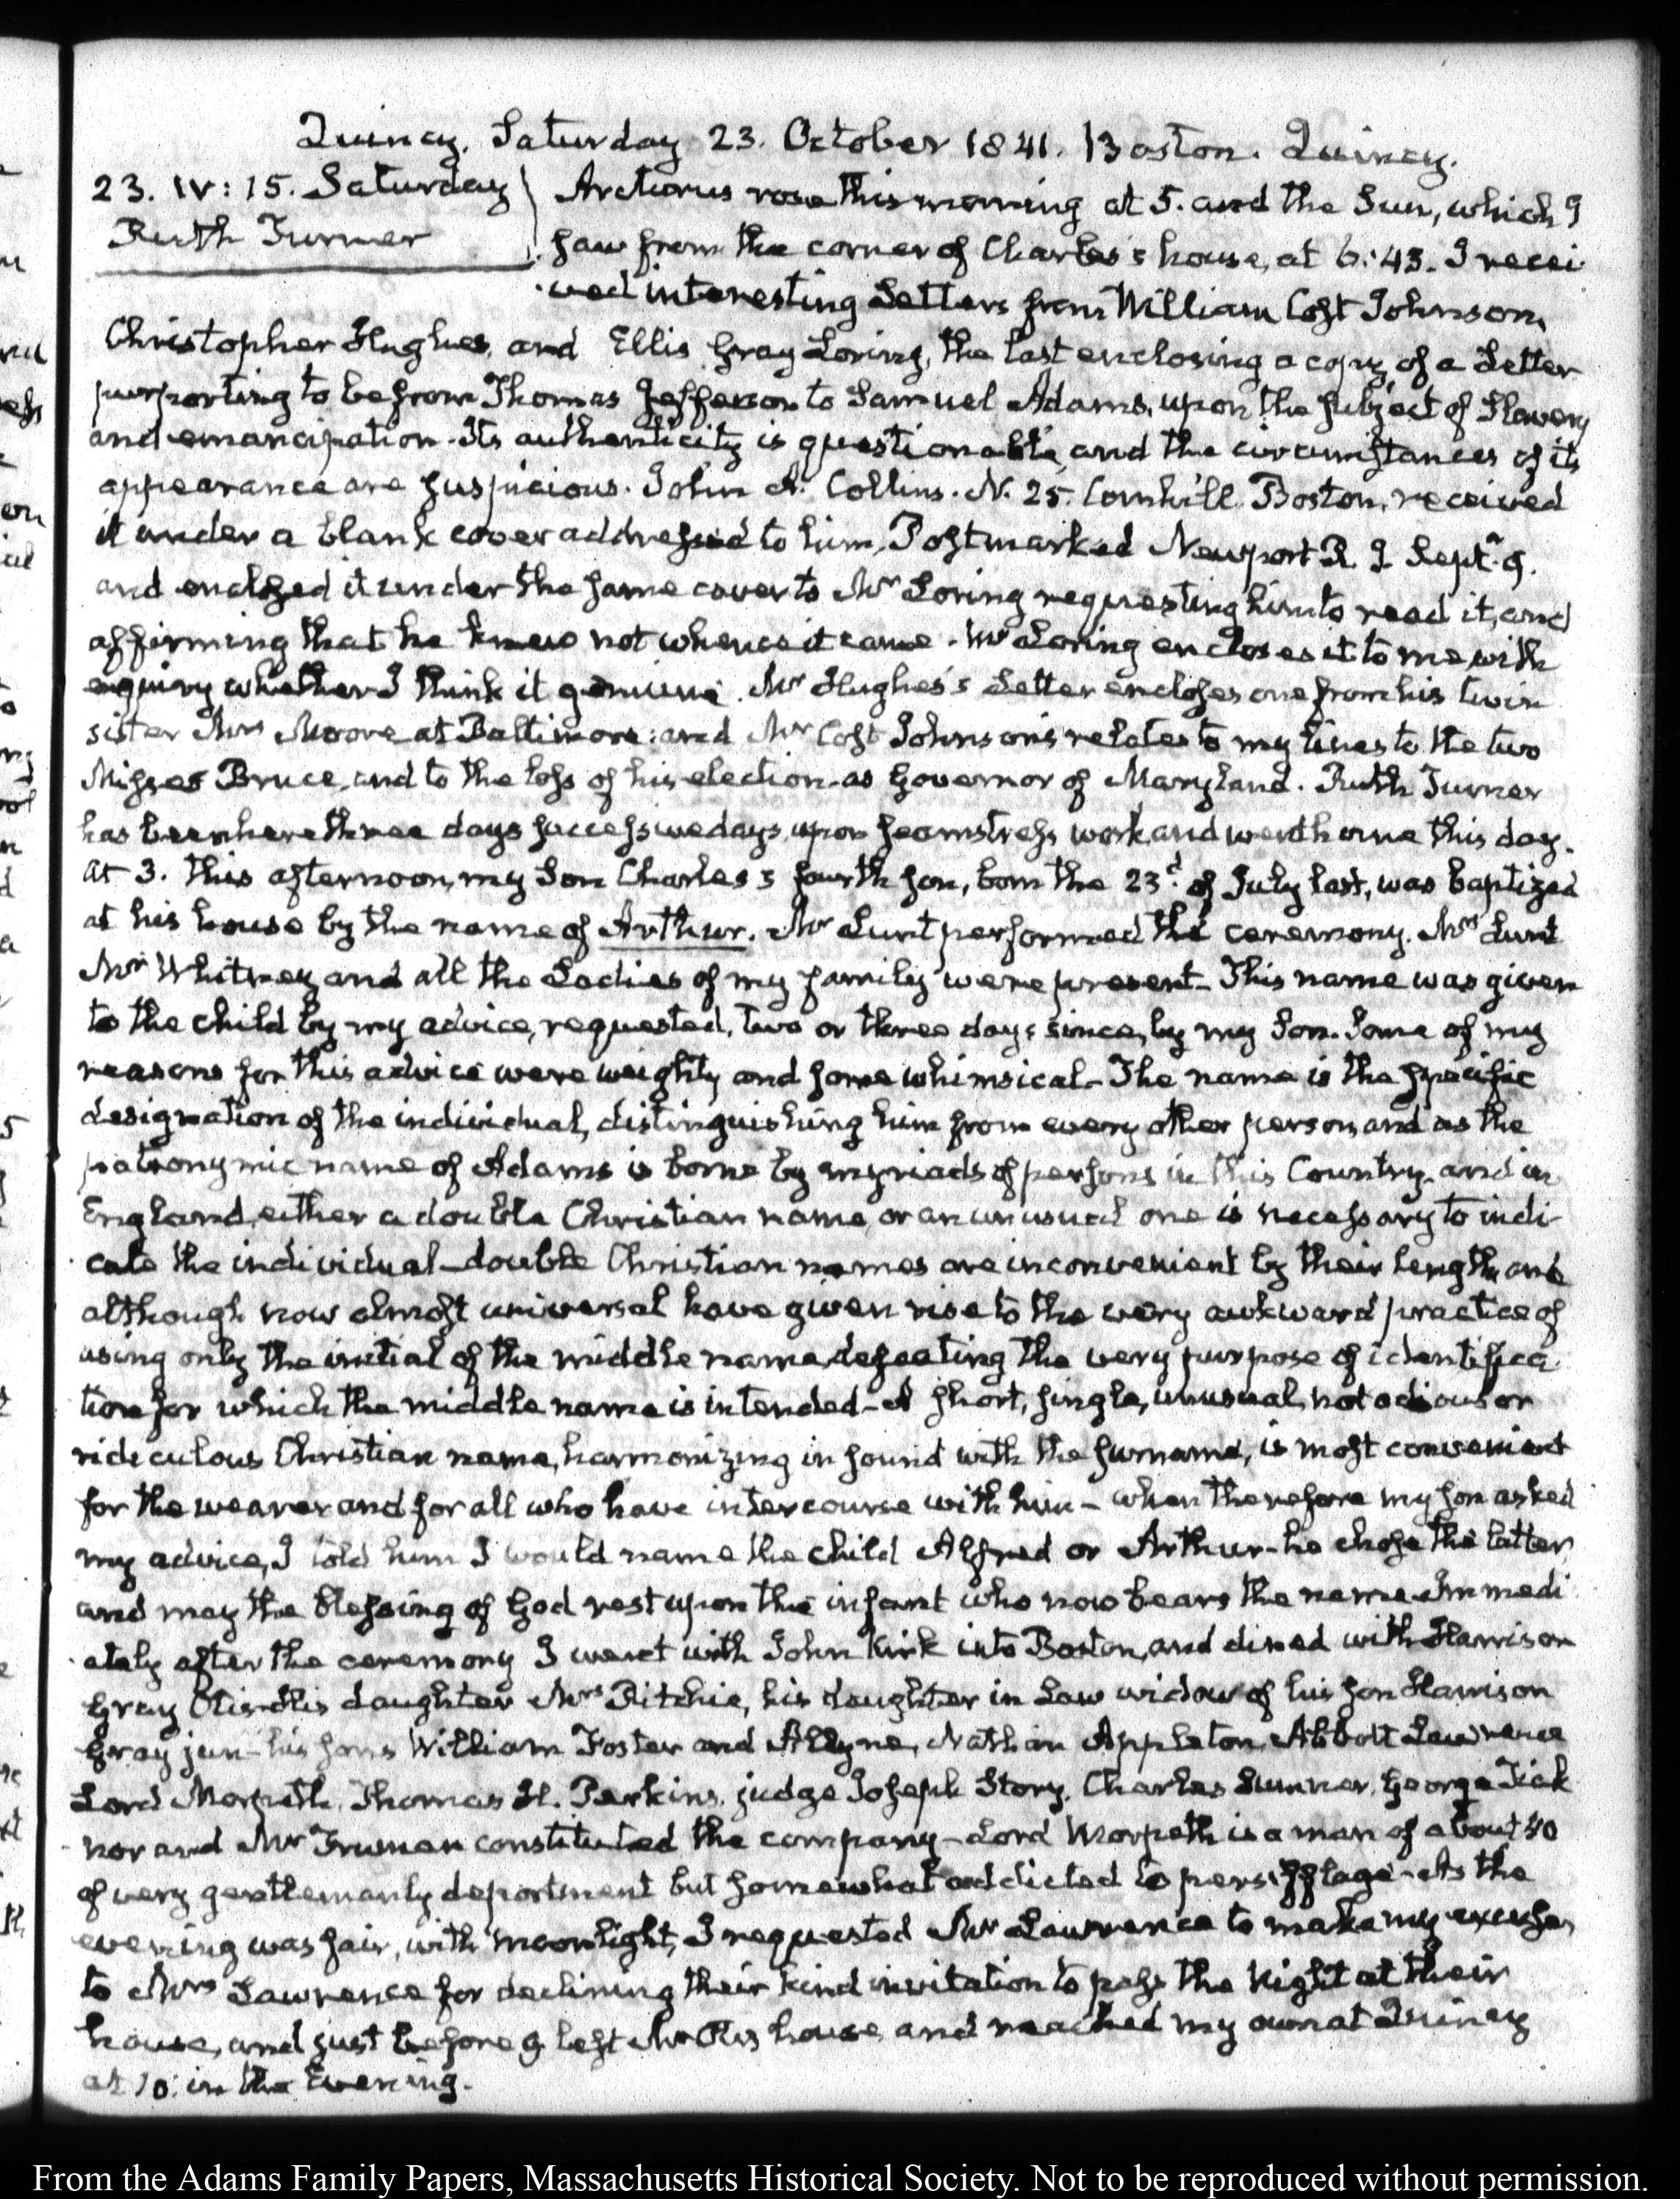 Quincy. Saturday 23. October 1841. Boston. Quincy.
23. IV: 15. Saturday
Ruth Turner
Arcturus rose this morning at 5. and the Sun, which I
saw from the corner of Charles's house, at 6:43. I recei
ved interesting Letters from William Cost Johnson,
Christopher Hughes, and Ellis Gray Loring, the last enclosing a copy of a Letter
purporting to be from Thomas Jefferson to Samuel Adams, upon the subject of Slavery
and emancipation. Its authenticity is questionable, and the circumstances of its
appearance are suspicious. John A. Collins. N. 25. Cornhill. Boston, received
it under a blank cover addressed to him, Postmarked Newport R. I. Septr. 9.
and enclosed it under the same cover to Mr Loring requesting him to read it, and
affirming that he knew not whence it came. Mr Loring encloses it to me with
enquiry whether I think it genuine. Mr Hughes's Letter encloses one from his twin
sister Mrs Moore at Baltimore: and Mr Cost Johnson's relates to my lines to the two
Misses Bruce, and to the loss of his election as Governor of Maryland. Ruth Turner
has been here three days successive days, upon seamstress work and went home this day.
At 3. this afternoon, my Son Charles's fourth son, born the 23d. of July last, was baptized
at his house by the name of Arthur. Mr Lunt performed the ceremony. Mrs Lunt
Mr Whitney and all the Ladies of my family were present. This name was given
to the child by my advice, requested, two or three days since, by my Son. Some of my
reasons for this advice were weighty and some whimsical. The name is the specific
designation of the individual, distinguishing him from every other person, and as the
patronymic name of Adams is borne by myriads of persons in this Country, and in
England, either a double Christian name, or an unusual one is necessary to indi
cate the individual. double Christian names are inconvenient by their length, and
although now almost universal have given rise to the very awkward practice of
using only the initial of the middle name, defeating the very purpose of identifica
tion for which the middle name is intended. A short, single, unusual, not odious or
ridiculous Christian name, harmonizing in sound with the surname, is most convenient
for the wearer and for all who have intercourse with him - when therefore my son asked
my advice, I told him I would name the child Alfred or Arthur. he chose the latter
and may the blessing of God rest upon the infant who now bears the name. Immedi
ately after the ceremony I went with John Kirk into Boston, and dined with Harrison
Gray Otis. His daughter Mrs Ritchie, his daughter in Law widow of his son Harrison
Gray jun- his sons William Foster and Allyne, Nathan Appleton, Abbott Lawrence
Lord Morpeth, Thomas H. Perkins, judge Joseph Story, Charles Sumner, George Tick
nor and Mr constituted the company - Lord Morpeth is a man of about 40
of very gentlemanly deportment but somewhat addicted to persifflage. As the
evening was fair, with moonlight, I requested Mr Lawrence to make my excuses
to Mrs Lawrence for declining their kind invitation to pass the Night at their
house, and just before 9 left Mr Otis house, and reached my own at Quincy
at 10. in the Evening.
From the Adams Family Papers, Massachusetts Historical Society. Not to be reproduced without permission.